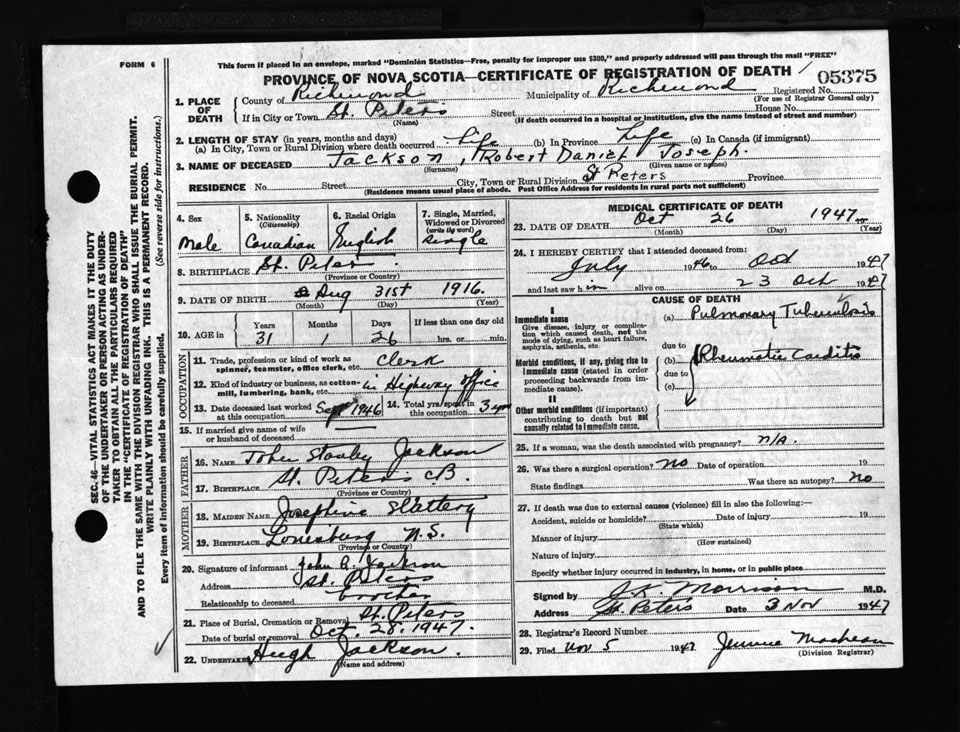 FORM 6
This form if placed in an envelope, marked "Dominion Statistics—Free, penalty for improper use $300," and properly addressed will pass through the mail "FREE"
PROVINCE OF NOVA SCOTIA—CERTIFICATE OF REGISTRATION OF DEATH
05375
1. PLACE OF DEATH
County of Richmond Municipality of Richmond Registered No.
(For use of Registrar General only)
If in City or Town St. Peters Street House No.
(Name) (If death occurred in a hospital or institution, give the name instead of street and number)
2. LENGTH OF STAY (in years, months and days)
(a) In City, Town or Rural Division where death occurred Life (b) In Province Life (c) In Canada (if immigrant)
3. NAME OF DECEASED Jackson, Robert Daniel Joseph.
(Surname) (Given name or names)
RESIDENCE No. Street City, Town or Rural Division St Peters Province
(Residence means usual place of abode. Post Office Address for residents in rural parts not sufficient)
4. Sex Male
5. Nationality (Citizenship) Canadian
6. Racial Origin English
7. Single, Married, Widowed or Divorced (write the word) Single
8. BIRTHPLACE St. Peters
(Province or Country)
9. DATE OF BIRTH Aug 31st 1916.
(Month) (Day) (Year)
10. AGE in Years Months Days If less than one day old
31 1 26 hrs. or min.
OCCUPATION
11. Trade, profession or kind of work as spinner, teamster, office clerk, etc. Clerk
12. Kind of industry or business, as cotton-mill, lumbering, bank, etc. in Highway office
13. Date deceased last worked at this occupation Sept 1946
14. Total yrs. spent in this occupation 3 yrs
15. If married give name of wife or husband of deceased
FATHER
16. NAME John Stanley Jackson
17. BIRTHPLACE St. Peters CB.
(Province or Country)
MOTHER
18. MAIDEN NAME Josephine Slattery
19. BIRTHPLACE Louisburg N.S.
(Province or Country)
20. Signature of informant John A. Jackson
Address St. Peters
Relationship to deceased brother
21. Place of Burial, Cremation or Removal St. Peters
Date of burial or removal Oct. 28, 1947.
22. UNDERTAKER Hugh Jackson.
(Name and address)
MEDICAL CERTIFICATE OF DEATH
23. DATE OF DEATH Oct 26 1947
(Month) (Day) (Year)
24. I HEREBY CERTIFY that I attended deceased from:
July 1946 to Oct 1947
and last saw him alive on 23 Oct 1947
CAUSE OF DEATH
I
Immediate cause (a) Pulmonary Tuberculosis
Give disease, injury or complication which caused death, not the mode of dying, such as heart failure, asphyxia, asthenia, etc.
due to
Morbid conditions, if any, giving rise to immediate cause (stated in order proceeding backwards from immediate cause). (b) Rheumatic Carditis
due to
(c)
II
Other morbid conditions (if important) contributing to death but not causally related to immediate cause.
25. If a woman, was the death associated with pregnancy? n/a.
26. Was there a surgical operation? no Date of operation 19
State findings Was there an autopsy? no
27. If death was due to external causes (violence) fill in also the following:
Accident, suicide or homicide? Date of injury 19
(State which)
Manner of injury
(How sustained)
Nature of injury
Specify whether injury occurred in industry, in home, or in public place
Signed by Morrison M.D.
Address St. Peters Date 3 Nov 1947
28. Registrar's Record Number
29. Filed Nov 5 1947 Jennie
(Division Registrar)
SEC. 46—VITAL STATISTICS ACT MAKES IT THE DUTY
OF THE UNDERTAKER OR PERSON ACTING AS UNDER-
TAKER TO OBTAIN ALL THE PARTICULARS REQUIRED
IN THE "CERTIFICATE OF REGISTRATION OF DEATH"
AND TO FILE THE SAME WITH THE DIVISION REGISTRAR WHO SHALL ISSUE THE BURIAL PERMIT.
WRITE PLAINLY WITH UNFADING INK. THIS IS A PERMANENT RECORD.
Every item of information should be carefully supplied. (See reverse side for instructions.)